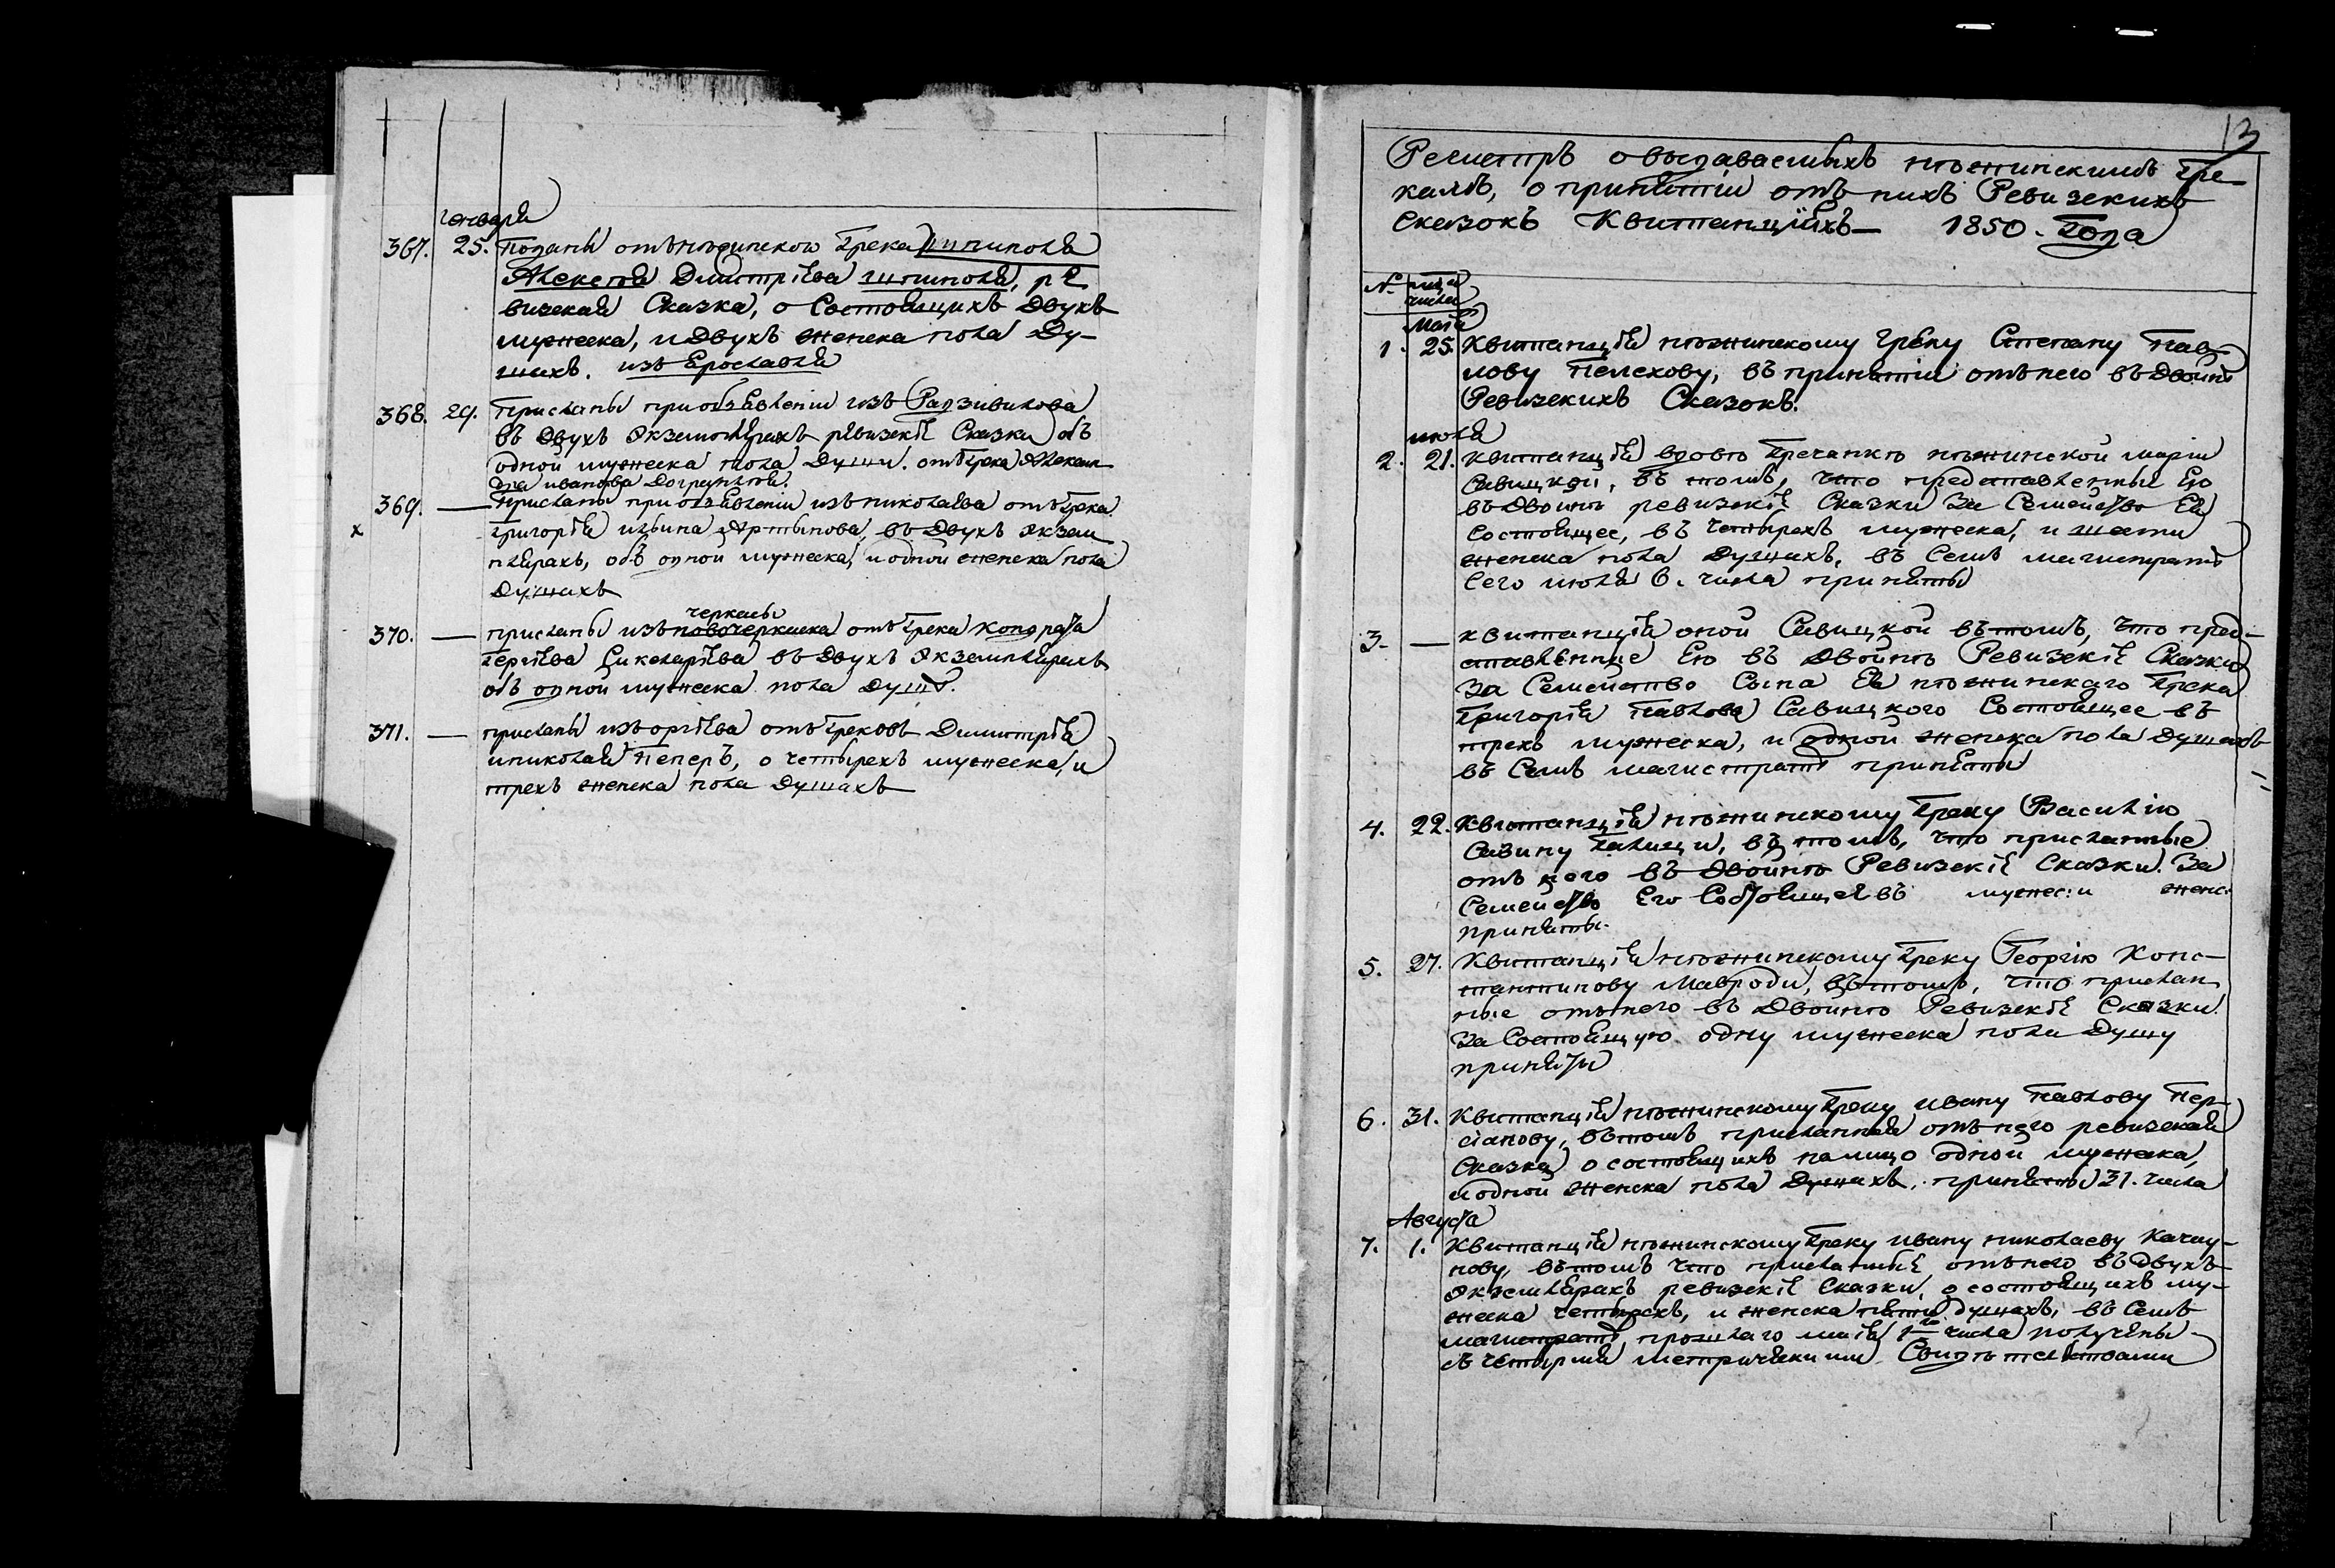 генваря
367. 25. Поданы отъ нѣжинского Грека Шпиполя
Алексея Дмитріева шпиполя, ре
визская Сказка, о Состоящихъ Двухъ
мужеска, и Двухъ женска пола Ду-
шахъ. изъ Ерославля
368. 29. присланы при объявленіи изъ Радзивилова
въ Двухъ экземплярахъ ревизскіе Сказки объ
одной мужеска пола Души. отъ Грека Алексан
дра иванова
369. — Присланы при объявленіи изъ николаева отъ Грека
х Григорія ильина Артынова, въ Двухъ экзем
плярахъ, объ одной мужеска, и одной женска пола
Душахъ
черкасы
370. — присланы изъ новочеркаска отъ Грека Кондрата
Сергіева Сикеларіева въ Двухъ экземплярахъ
объ одной мужеска пола Душѣ.
371. — присланы изъ оргіева отъ Грековъ Димитрія
и николая Пеперъ, о четырехъ мужеска, и
трехъ женска пола Душахъ
13
Регистръ о выдаваемыхъ нѣжинскимъ Гре
камъ, о принятіи отъ нихъ Ревизскихъ
Сказокъ Квитанціяхъ— 1850. Года
№ мца и
числа
Маія
1. 25. Квитанція нѣжинскому Греку Степану Пав-
лову Пелехову, въ принятіи отъ него въ Двойнѣ
Ревизскихъ Сказокъ.
июля
2. 21. квитанція вдовѣ Гречанкѣ нѣжинской маріи
Савицкой, въ томъ, что представленные Ею
въ Двойнѣ ревизскіе Сказки За Семейство Ея
Состоящее, въ Четырехъ мужеска, и шести
женска пола Душахъ, въ Семъ магистратѣ
Сего июля 6. числа приняты
3. — квитанція оной Савицкой въ томъ, что пред-
ставленные Ею въ Двойнѣ Ревизскіе Сказки
За Семейство Сына Ея нѣжинскаго Грека
Григорія Павлова Савицкого Состоящее въ
трехъ мужеска, и одной женска пола Душахъ
въ Семъ магистратѣ приняты
4. 22. Квитанція нѣжинскому Греку Василію
Савину въ томъ, что присланные
отъ него въ Двойнѣ Ревизскіе Сказки. За
Семейство Его Состоящее въ мужес: и женс:
приняты.
5. 27. Квитанція нѣжинскому Греку Георгію Конс-
тантинову Мавроди, въ томъ, что прислан
ные отъ него въ Двойнѣ Ревизскіе Сказки
За Состоящую одну мужеска пола Душу
приняты
6. 31. Квитанція нѣжинскому Греку ивану Павлову Пер-
сіанову, въ томъ присланная отъ него ревизская
Сказка о состоящихъ на лицо одной мужеска,
и одной женска пола Душахъ, приняты 31. числа
Августа
7. 1. Квитанція нѣжинскому Греку ивану николаеву Качу-
нову, въ томъ что присланные отъ него въ Двухъ
экземплярахъ ревизскіе Сказки, о состоящихъ му-
жеска четырехъ, и женска пяти душахъ, въ Семъ
магистратѣ, прошлаго маія 1го числа получены
съ четырмя метрическими Свидѣтельствами